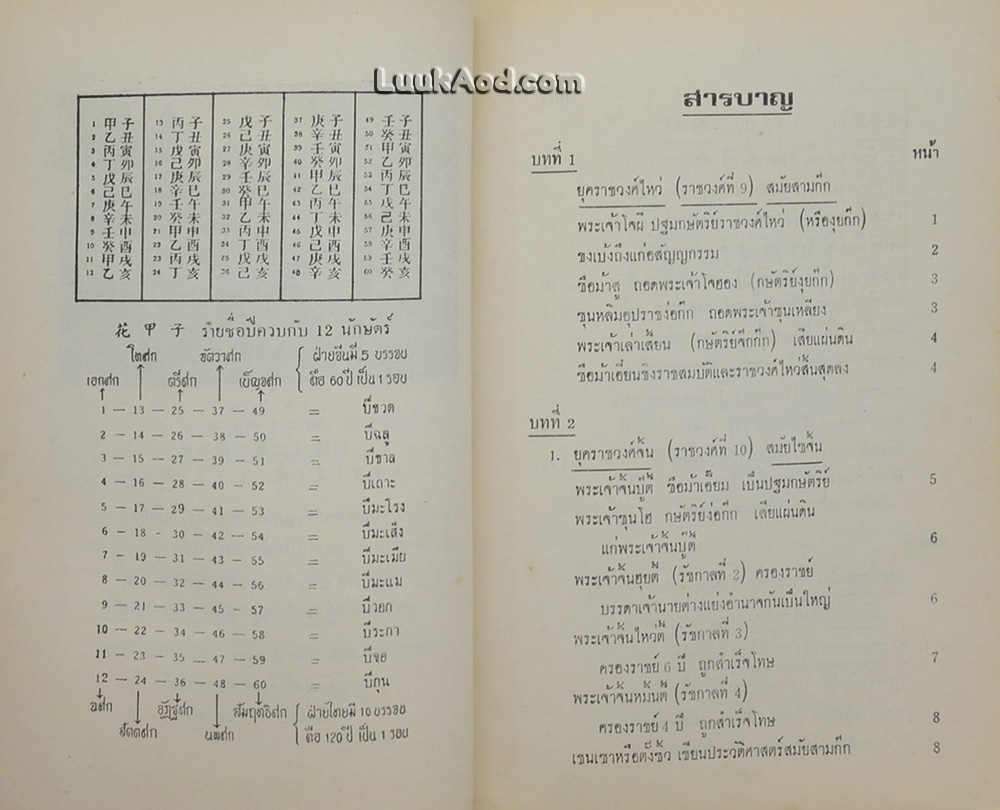 LuukAod.com
1 甲子 13 丙子 25 戊子 37 庚子 49 壬子
2 乙丑 14 丁丑 26 己丑 38 辛丑 50 癸丑
3 丙寅 15 戊寅 27 庚寅 39 壬寅 51 甲寅
4 丁卯 16 己卯 28 辛卯 40 癸卯 52 乙卯
5 戊辰 17 庚辰 29 壬辰 41 甲辰 53 丙辰
6 己巳 18 辛巳 30 癸巳 42 乙巳 54 丁巳
7 庚午 19 壬午 31 甲午 43 丙午 55 戊午
8 辛未 20 癸未 32 乙未 44 丁未 56 己未
9 壬申 21 甲申 33 丙申 45 戊申 57 庚申
10 癸酉 22 乙酉 34 丁酉 46 己酉 58 辛酉
11 甲戌 23 丙戌 35 戊戌 47 庚戌 59 壬戌
12 乙亥 24 丁亥 36 己亥 48 辛亥 60 癸亥
花甲子 รายชื่อปีควบกับ 12 นักษัตร์
โทศก จัตวาศก ฝ่ายจีนมี 5 บรรจบ
เอกศก ตรีศก เบ็ญจศก ถือ 60 ปี เป็น 1 รอบ
1 — 13 — 25 — 37 — 49 = ปีชวด
2 — 14 — 26 — 38 — 50 = ปีฉลู
3 — 15 — 27 — 39 — 51 = ปีขาล
4 — 16 — 28 — 40 — 52 = ปีเถาะ
5 — 17 — 29 — 41 — 53 = ปีมะโรง
6 — 18 - 30 — 42 — 54 = ปีมะเส็ง
7 — 19 — 31 — 43 — 55 = ปีมะเมีย
8 — 20 — 32 — 44 — 56 = ปีมะแม
9 — 21 — 33 — 45 - 57 = ปีวอก
10 — 22 — 34 — 46 — 58 = ปีระกา
11 — 23 — 35 — 47 — 59 = ปีจอ
12 — 24 — 36 — 48 — 60 = ปีกุน
ฉศก อัฏฐศก สัมฤทธิศก ฝ่ายไทยมี 10 บรรจบ
สัตตศก นพศก ถือ 120 ปี เป็น 1 รอบ
สารบาญ
หน้า
บทที่ 1
ยุคราชวงศ์ไหว่ (ราชวงศ์ที่ 9) สมัยสามก๊ก
พระเจ้าโจผี ปฐมกษัตริย์ราชวงศ์ไหว่ (หรืองุยก๊ก) 1
ขงเบ้งถึงแก่อสัญญกรรม 2
ซือม้าสู ถอดพระเจ้าโจฮอง (กษัตริย์งุยก๊ก) 3
ซุนหลิมอุปราชง่อก๊ก ถอดพระเจ้าซุนเหลียง 3
พระเจ้าเล่าเสี้ยน (กษัตริย์จ๊กก๊ก) เสียแผ่นดิน 4
ซือม้าเอี๋ยนชิงราชสมบัติและราชวงศ์ไหว่สิ้นสุดลง 4
บทที่ 2
1. ยุคราชวงศ์จิ้น (ราชวงศ์ที่ 10) สมัยไซจิ้น
พระเจ้าจิ้นบู๊ตี้ ซือม้าเอี๋ยม เป็นปฐมกษัตริย์ 5
พระเจ้าซุนโฮ กษัตริย์ง่อก๊ก เสียแผ่นดิน
แก่พระเจ้าจิ้นบู๊ตี้ 6
พระเจ้าจิ้นฮุยตี้ (รัชกาลที่ 2) ครองราชย์
บรรดาเจ้านายต่างแย่งอำนาจกันเป็นใหญ่ 6
พระเจ้าจิ้นไหว่ตี้ (รัชกาลที่ 3)
ครองราชย์ 6 ปี ถูกสำเร็จโทษ 7
พระเจ้าจิ้นหมิ้นตี้ (รัชกาลที่ 4)
ครองราชย์ 4 ปี ถูกสำเร็จโทษ 8
เซนเซาหรือตั้งซิ่ว เขียนประวัติศาสตร์สมัยสามก๊ก 8